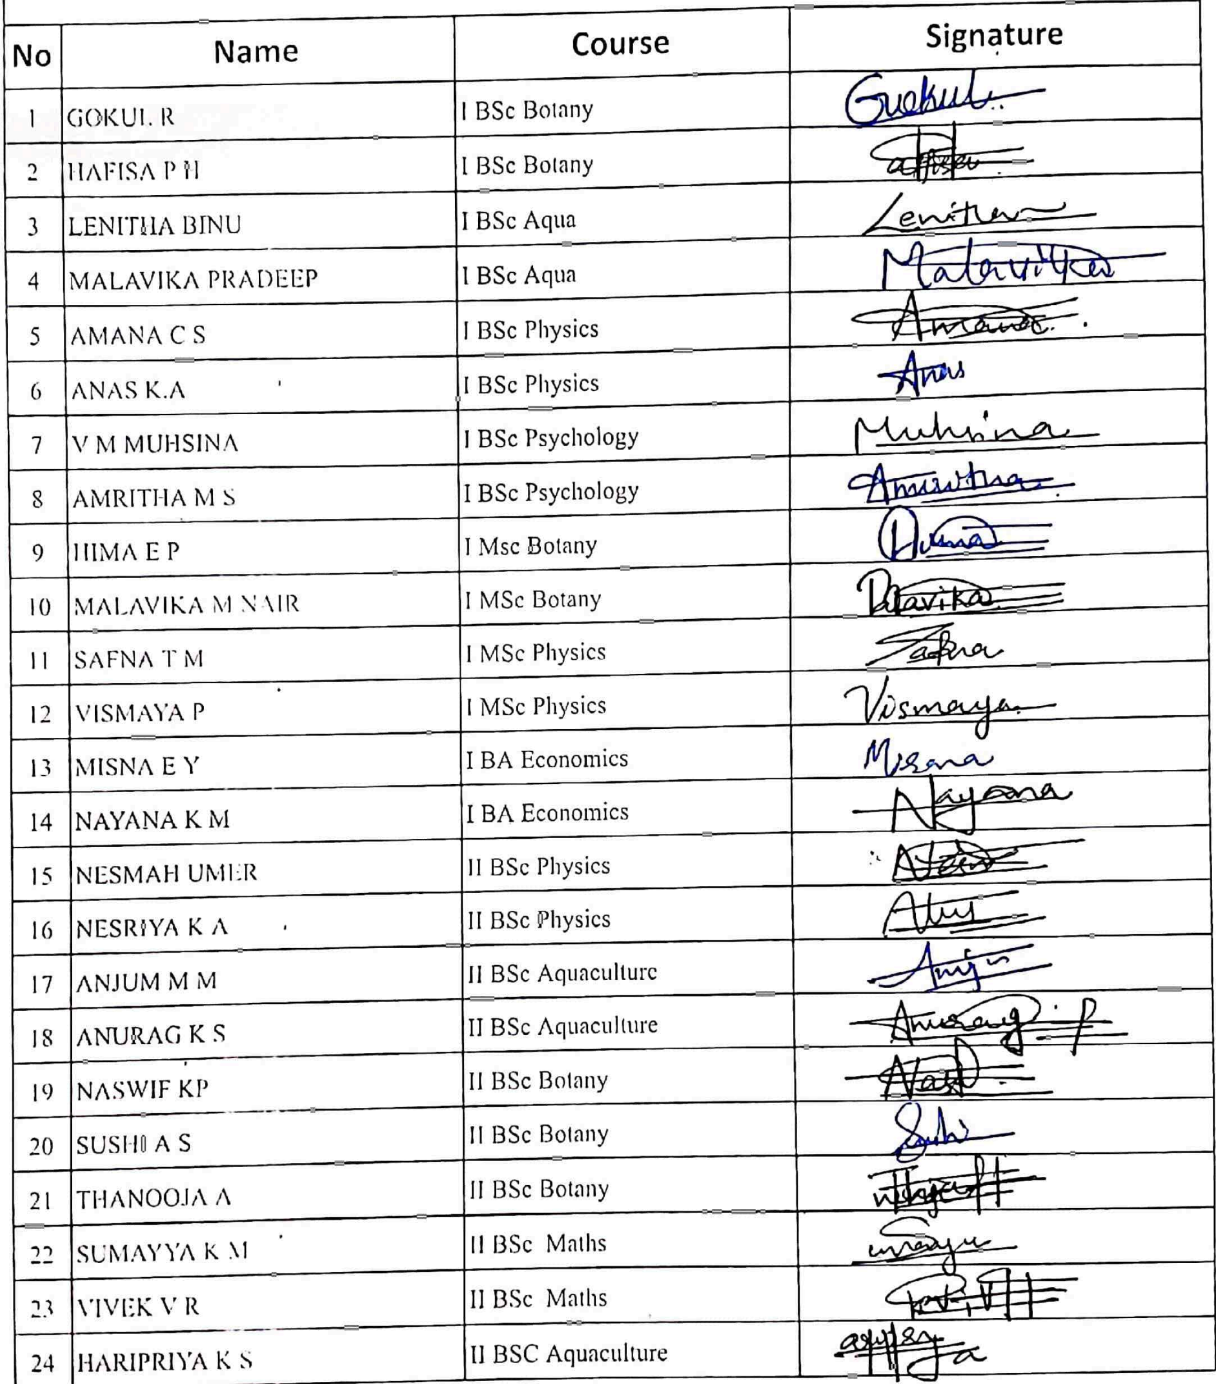 No Name Course Signature
1 GOKUL R I BSc Botany Gokul
2 HAFISA P H I BSc Botany
3 LENITHA BINU I BSc Aqua Lenitha
4 MALAVIKA PRADEEP I BSc Aqua Malavika
5 AMANA C S I BSc Physics Amana
6 ANAS K.A I BSc Physics Anas
7 V M MUHSINA I BSc Psychology Muhsina
8 AMRITHA M S I BSc Psychology Amritha
9 HIMA E P I Msc Botany Hima
10 MALAVIKA M NAIR I MSc Botany Malavika
11 SAFNA T M I MSc Physics Safna
12 VISMAYA P I MSc Physics Vismaya
13 MISNA E Y I BA Economics Misna
14 NAYANA K M I BA Economics Nayana
15 NESMAH UMER II BSc Physics
16 NESRIYA K A II BSc Physics
17 ANJUM M M II BSc Aquaculture
18 ANURAG K S II BSc Aquaculture Anurag
19 NASWIF KP II BSc Botany
20 SUSHI A S II BSc Botany
21 THANOOJA A II BSc Botany
22 SUMAYYA K M II BSc Maths
23 VIVEK V R II BSc Maths
24 HARIPRIYA K S II BSC Aquaculture